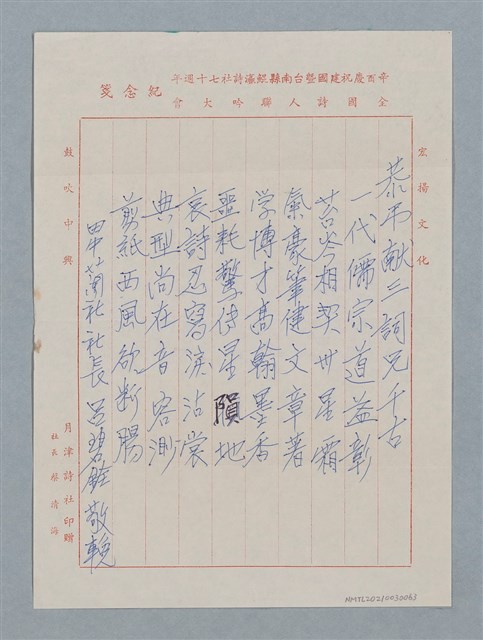 辛酉慶祝建國暨台南縣經瀛詩社七十週年
全國詩人聯吟大會
紀念箋
宏揚文化
恭弔献三詞兄千古
一代儒宗道益彰
苔岑相契卅星霜
氣豪筆健文章著
学博才高翰墨香
噩耗驚传星隕地
哀詩忍写淚沾裳
典型尚在音容渺
剪紙西風欲断腸
田中蘭社社長呂碧銓敬輓
鼓吹中興
月津詩社印贈
社長 蔡清海
NMTL20210030063